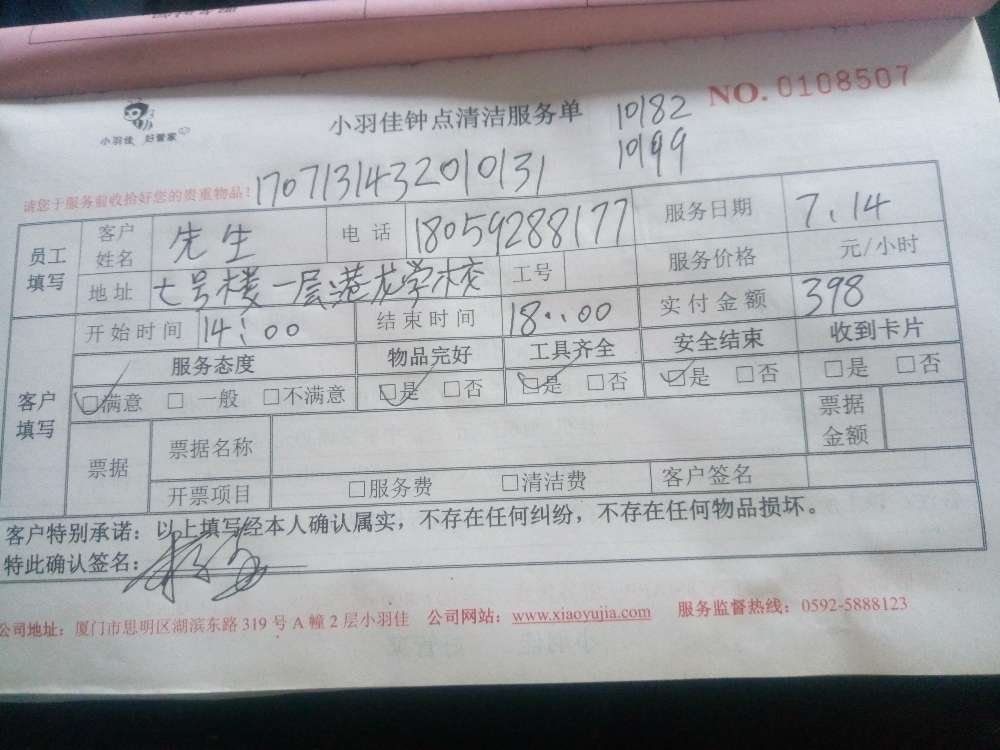 小羽佳 好管家
小羽佳钟点清洁服务单
10182
10199
NO. 0108507
请您于服务前收拾好您的贵重物品!
170713143201 0131
员工填写 客户姓名 先生 电话 18059288177 服务日期 7.14
地址 七号楼一层港龙学校 工号 服务价格 元/小时
客户填写 开始时间 14:00 结束时间 18:00 实付金额 398
服务态度 物品完好 工具齐全 安全结束 收到卡片
□满意 □一般 □不满意 □是 □否 □是 □否 □是 □否 □是 □否
票据 票据名称 票据金额
开票项目 □服务费 □清洁费 客户签名
客户特别承诺：以上填写经本人确认属实，不存在任何纠纷，不存在任何物品损坏。
特此确认签名：
公司地址：厦门市思明区湖滨东路 319 号 A 幢 2 层小羽佳 公司网站：www.xiaoyujia.com 服务监督热线：0592-5888123